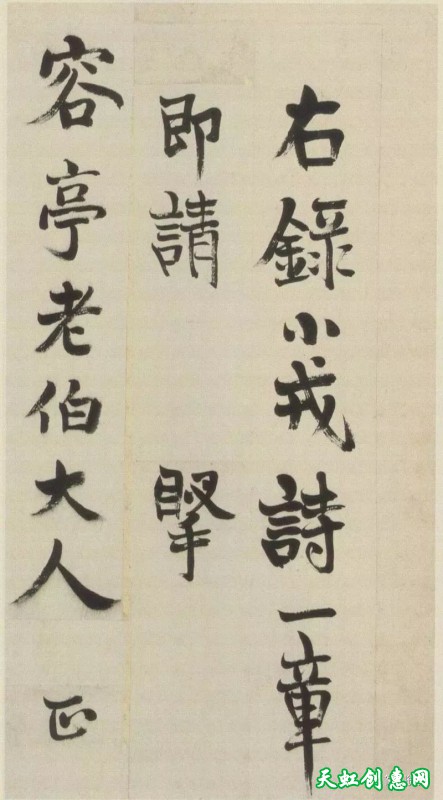 右錄小戎詩一章
即請 掔
容亭老伯大人 正
天虹创惠网